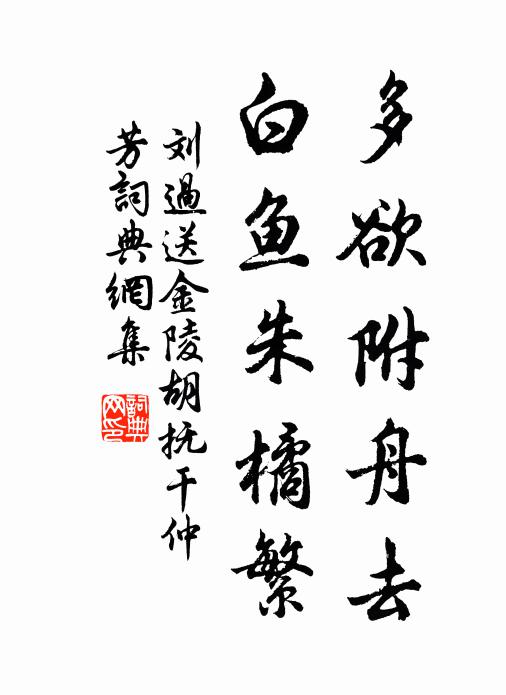 多欲附舟去
白鱼朱橘繁
刘過送金陵胡抚干仲
芳詞典網集
詞典
网印